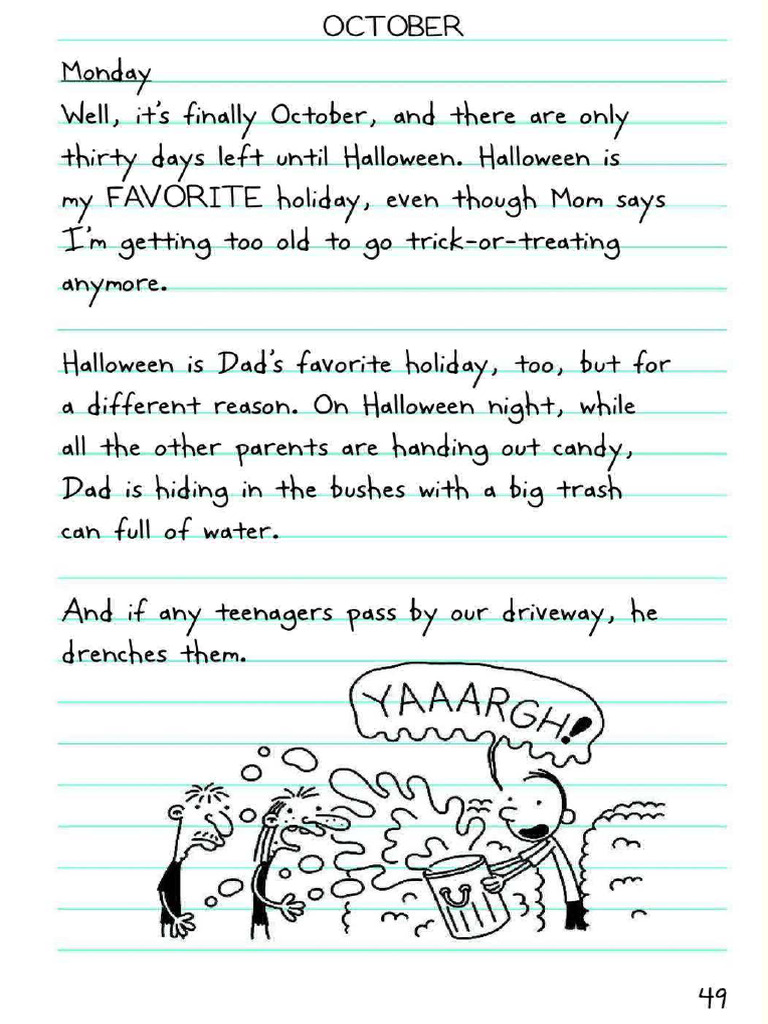 OCTOBER
Monday
Well, it's finally October, and there are only
thirty days left until Halloween. Halloween is
my FAVORITE holiday, even though Mom says
I'm getting too old to go trick-or-treating
anymore.
Halloween is Dad's favorite holiday, too, but for
a different reason. On Halloween night, while
all the other parents are handing out candy,
Dad is hiding in the bushes with a big trash
can full of water.
And if any teenagers pass by our driveway, he
drenches them.
YAAARGH!
49